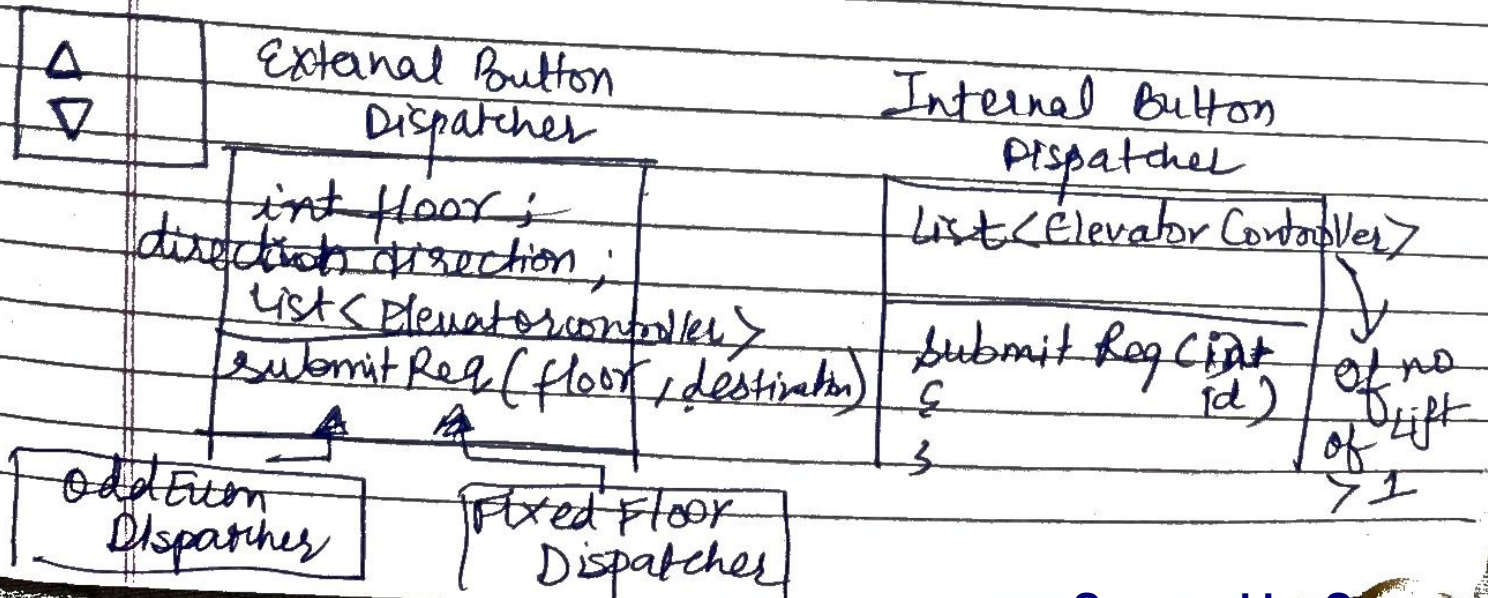 External Button
Dispatcher
int floor;
direction direction;
List<Elevatorcontroller>
submit Req (floor, destination)
OddEven
Dispatcher
Fixed Floor
Dispatcher
Internal Button
Dispatcher
List<Elevator Controller>
Submit Req (int
id)
{
}
of no
of Lift
> 1
Scanned by